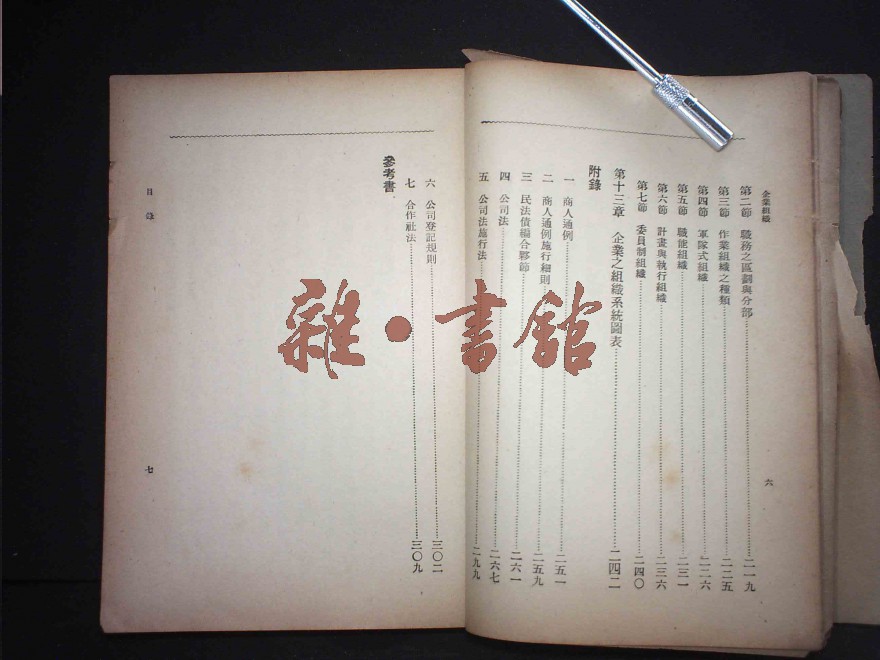 企業組織
第二節　職務之區劃與分部…………二一九
第三節　作業組織之種類…………二二五
第四節　軍隊式組織…………二二六
第五節　職能組織…………二三一
第六節　計畫與執行組織…………二三六
第七節　委員制組織…………二四〇
第十三章　企業之組織系統圖表…………二四二
附錄
一　商人通例…………二五一
二　商人通例施行細則…………二五九
三　民法債編合夥節…………二六一
四　公司法…………二六七
五　公司法施行法…………二九九
六
六　公司登記規則…………三〇二
七　合作社法…………三〇九
參考書
目錄
七
雜•書館